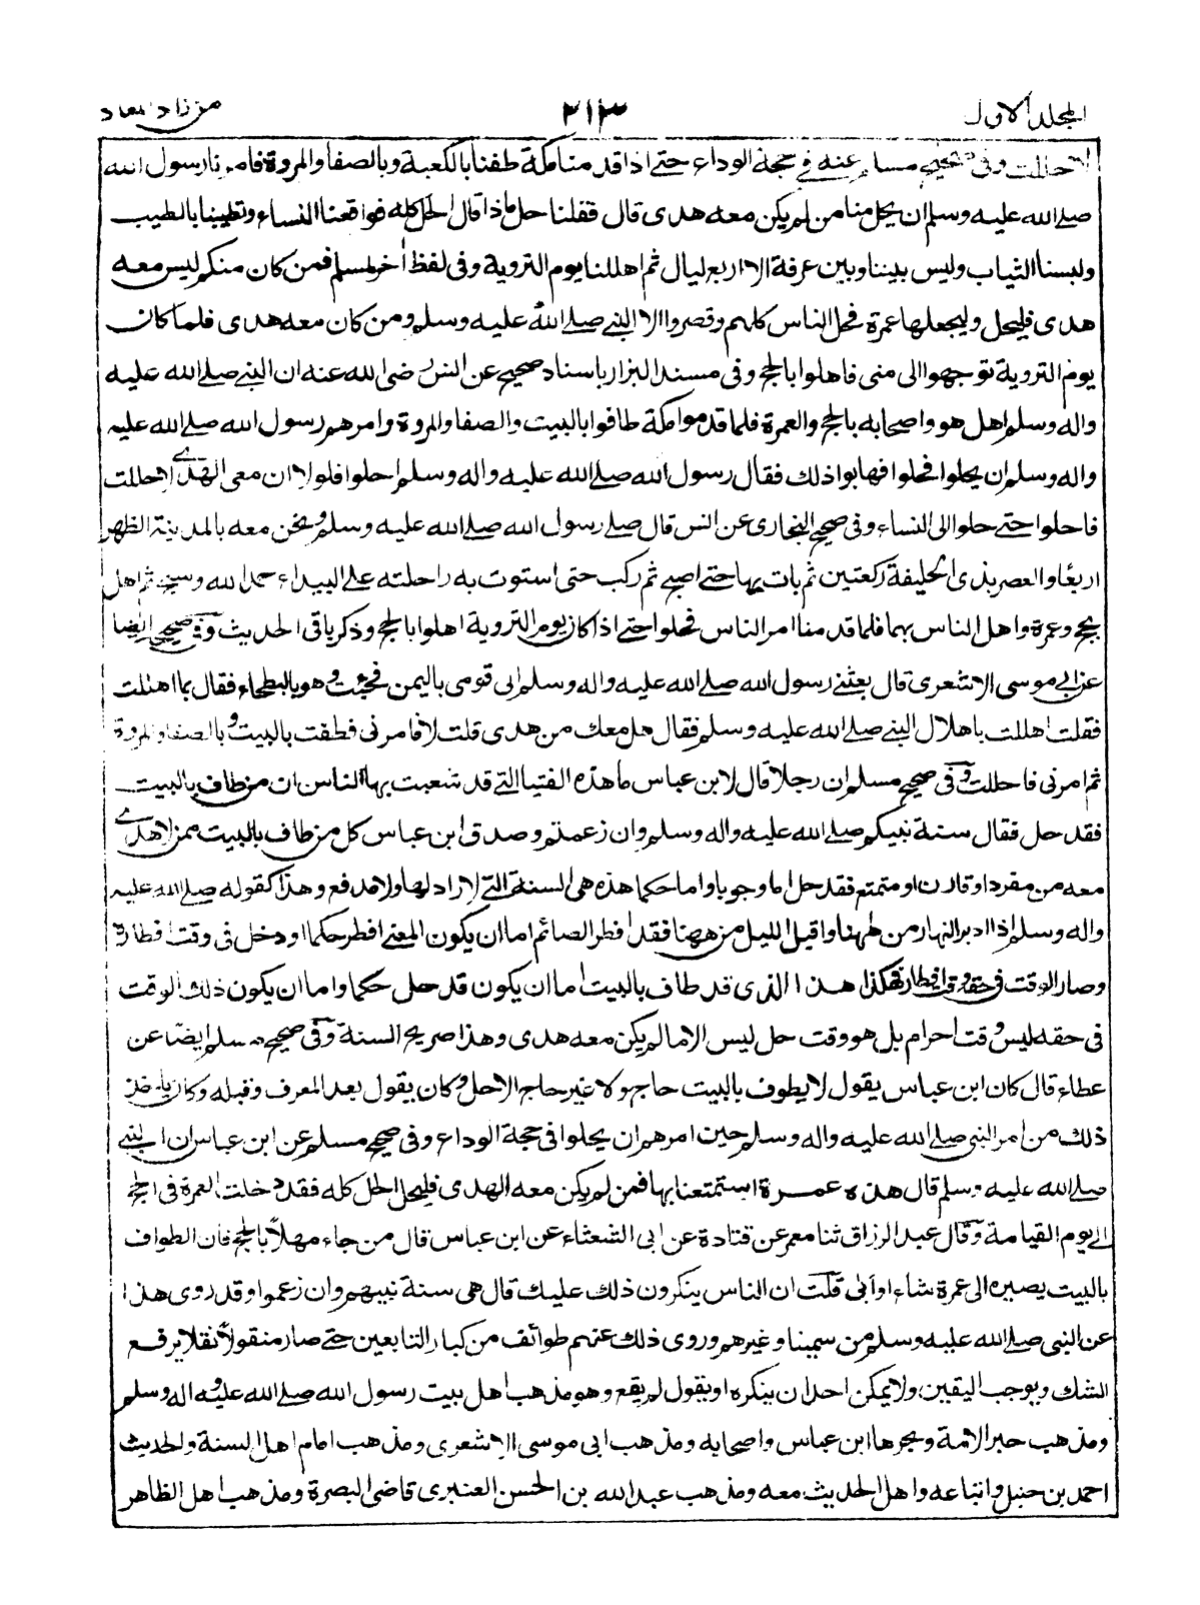 المجلد الاول
٢١٣
من زاد المعاد
لاحللت وفى صحيح مسلم عنه فى حجة الوداع حتى اذا قدمنا مكة طفنا بالكعبة وبالصفا والمروة فامرنا رسول الله
صلى الله عليه وسلم ان يحل منا من لم يكن معه هدى قال فقلنا حل ماذا قال الحل كله فواقعنا النساء وتطيبنا بالطيب
ولبسنا الثياب وليس بيننا وبين عرفة الا اربع ليال ثم اهللنا يوم التروية وفى لفظ اخر لمسلم فمن كان منكم ليس معه
هدى فليحل وليجعلها عمرة فحل الناس كلهم وقصروا الا النبى صلى الله عليه وسلم ومن كان معه هدى فلما كان
يوم التروية توجهوا الى منى فاهلوا بالحج وفى مسند البزار باسناد صحيح عن انس رضى الله عنه ان النبى صلى الله عليه
واله وسلم اهل هو واصحابه بالحج والعمرة فلما قدموا مكة طافوا بالبيت والصفا والمروة وامرهم رسول الله صلى الله عليه
واله وسلم ان يحلوا فحلوا فهابوا ذلك فقال رسول الله صلى الله عليه واله وسلم احلوا فلولا ان معى الهدى لاحللت
فاحلوا حتى حلوا الى النساء وفى صحيح البخارى عن انس قال صلى رسول الله صلى الله عليه وسلم ونحن معه بالمدينة الظهر
اربعًا والعصر بذى الحليفة ركعتين ثم بات بها حتى اصبح ثم ركب حتى استوت به راحلته على البيداء حمد الله وسبح ثم اهل
بحج وعمرة واهل الناس بهما فلما قدمنا امر الناس فحلوا حتى اذا كان يوم التروية اهلوا بالحج وذكر باقى الحديث وفى صحيحه ايضا
عن ابى موسى الاشعرى قال بعثنى رسول الله صلى الله عليه واله وسلم الى قومى باليمن فجئت وهو بالبطحاء فقال بما اهللت
فقلت اهللت باهلال النبى صلى الله عليه وسلم فقال هل معك من هدى قلت لا فامرنى فطفت بالبيت وبالصفا والمروة
ثم امرنى فاحللت وفى صحيح مسلم ان رجلا قال لابن عباس ما هذه الفتيا التى قد شعبت بها الناس ان من طاف بالبيت
فقد حل فقال سنة نبيكم صلى الله عليه واله وسلم وان زعمتم وصدق ابن عباس كل من طاف بالبيت ممن لا هدى
معه من مفرد او قارن او متمتع فقد حل اما وجوبا واما حكما هذه هى السنة التى لا راد لها ولا مدفع وهذا كقوله صلى الله عليه
واله وسلم اذا ادبر النهار من ههنا واقبل الليل من ههنا فقد افطر الصائم اما ان يكون المعنى افطر حكما او دخل فى وقت افطاره
وصار الوقت فى حقه وقت افطار فهكذا هذا الذى قد طاف بالبيت اما ان يكون قد حل حكما واما ان يكون ذلك الوقت
فى حقه ليس وقت احرام بل هو وقت حل ليس الا ما لم يكن معه هدى وهذا صريح السنة وفى صحيح مسلم ايضا عن
عطاء قال كان ابن عباس يقول لا يطوف بالبيت حاج ولا غير حاج الا حل وكان يقول بعد المعرف وقبله وكان ياخذ
ذلك من امر النبى صلى الله عليه واله وسلم حين امرهم ان يحلوا فى حجة الوداع وفى صحيح مسلم عن ابن عباس ان النبى
صلى الله عليه وسلم قال هذه عمرة استمتعنا بها فمن لم يكن معه الهدى فليحل الحل كله فقد دخلت العمرة فى الحج
الى يوم القيامة وقال عبد الرزاق ثنا معمر عن قتادة عن ابى الشعثاء عن ابن عباس قال من جاء مهلًا بالحج فان الطواف
بالبيت يصيره الى عمرة شاء او ابى قلت ان الناس ينكرون ذلك عليك قال هى سنة نبيهم وان زعموا وقد روى هذا
عن النبى صلى الله عليه وسلم من سمينا وغيرهم وروى ذلك عنهم طوائف من كبار التابعين حتى صار منقولًا نقلا يرفع
الشك ويوجب اليقين ولا يمكن احدا ن ينكره او يقول لم يقع وهو مذهب اهل بيت رسول الله صلى الله عليه واله وسلم
ومذهب حبر الامة وبحرها ابن عباس واصحابه ومذهب ابى موسى الاشعرى ومذهب امام اهل السنة والحديث
احمد بن حنبل واتباعه واهل الحديث معه ومذهب عبد الله بن الحسن العنبرى قاضى البصرة ومذهب اهل الظاهر